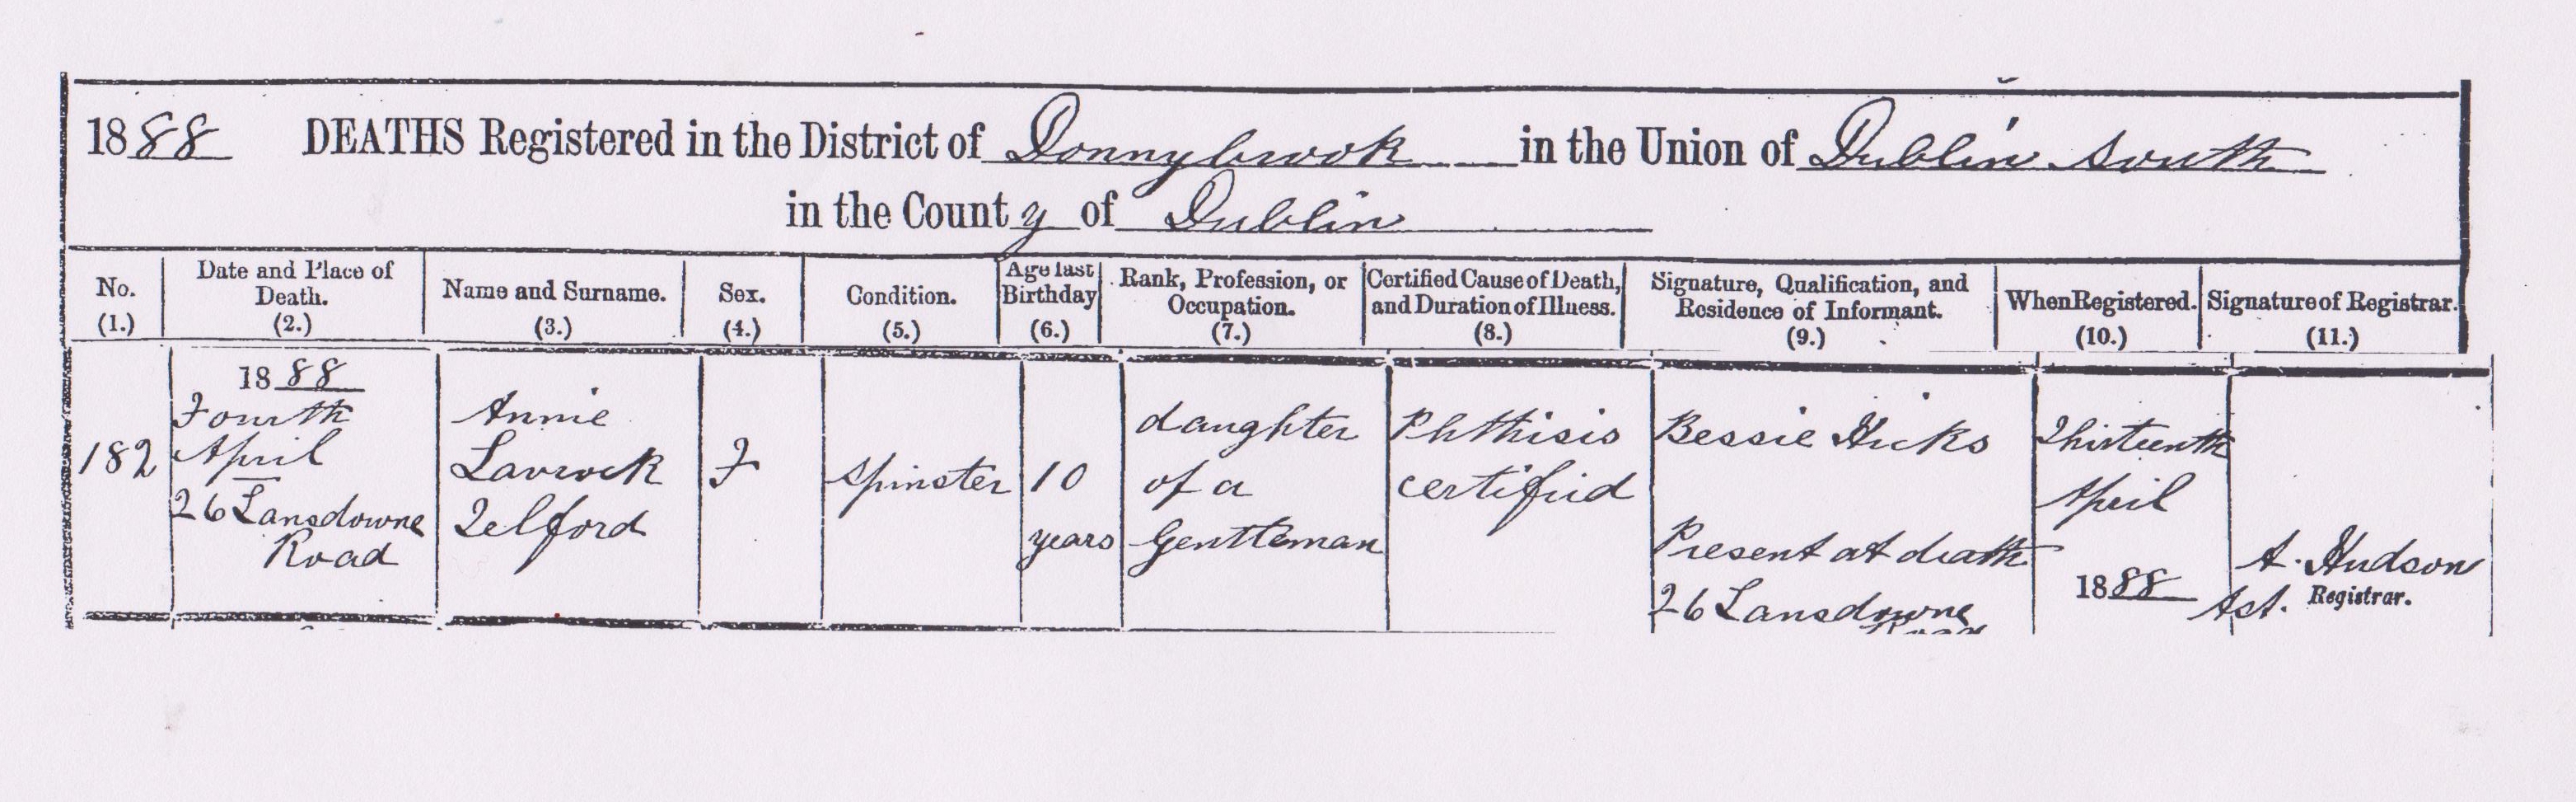 1888 DEATHS Registered in the District of Donnybrook in the Union of Dublin South
in the County of Dublin
No.
(1.)
Date and Place of
Death.
(2.)
Name and Surname.
(3.)
Sex.
(4.)
Condition.
(5.)
Age last
Birthday
(6.)
Rank, Profession, or
Occupation.
(7.)
Certified Cause of Death,
and Duration of Illness.
(8.)
Signature, Qualification, and
Residence of Informant.
(9.)
When Registered.
(10.)
Signature of Registrar.
(11.)
182
1888
Fourth
April
26 Lansdowne
Road
Annie
Telford
F
Spinster
10
years
daughter
of a
Gentleman
Phthisis
certified
Bessie Hicks
Present at death
26 Lansdowne
Road
Thirteenth
April
1888
A. Hudson
Ast. Registrar.